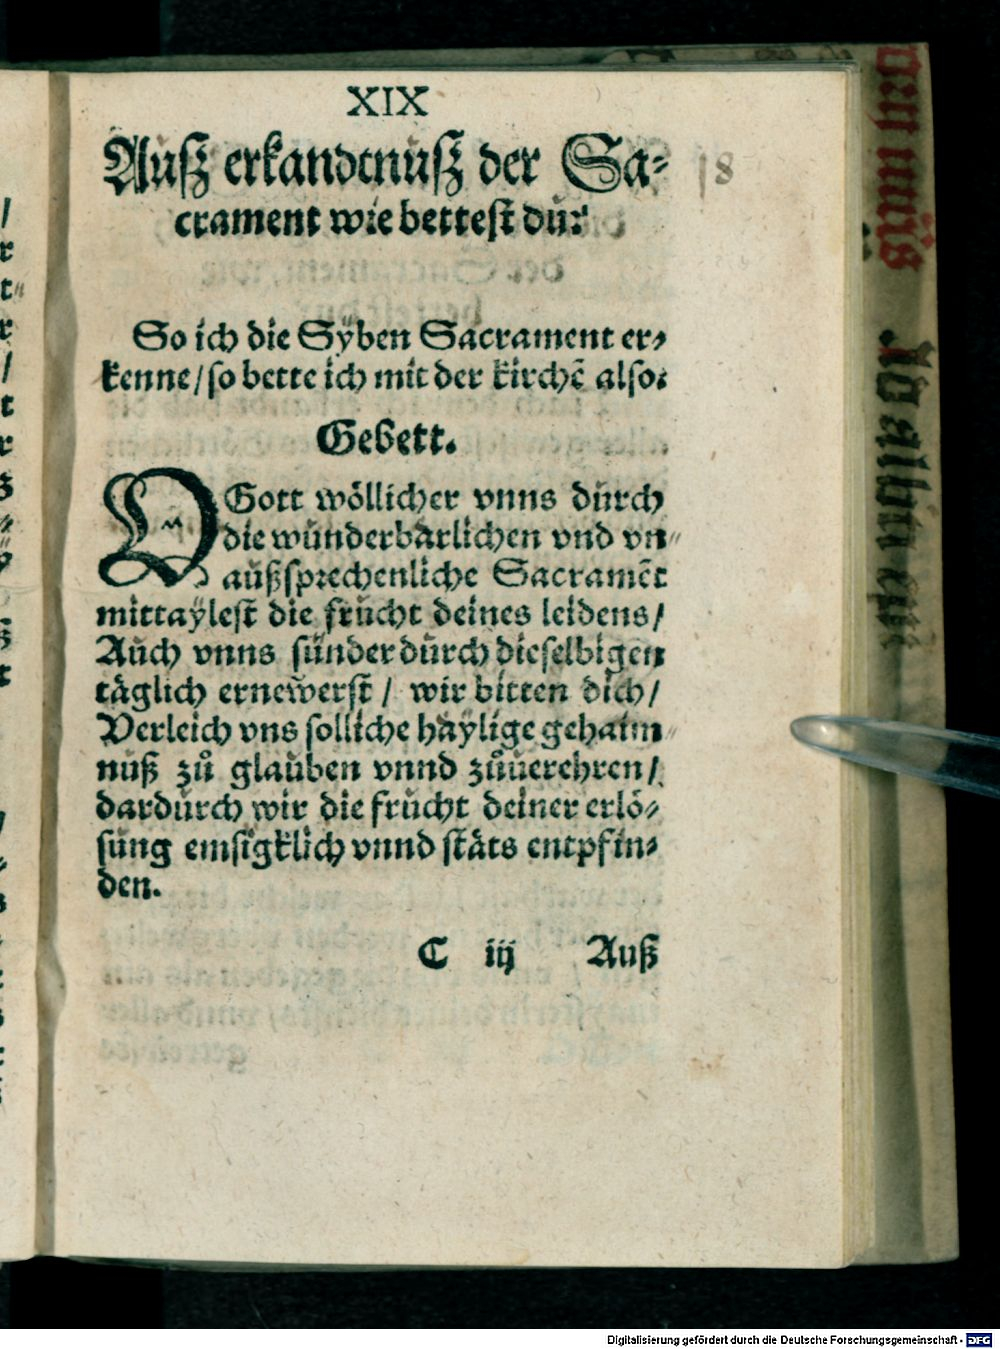 XIX
Auſz erkandtnuſz der Sa-
crament wie betteſt du?
18
So ich die Syben Sacrament er-
kenne/ ſo bette ich mit der kirchē alſo.
Gebett.
O Gott wöllicher vnns durch
die wunderbarlichen vnd vn-
außſprechenliche Sacramēt
mittayleſt die frucht deines leidens/
Auch vnns ſünder durch dieſelbigen
täglich ernewerſt / wir bitten dich/
Verleich vns ſolliche haylige gehaim-
nuß zů glauben vnnd zůuerehren/
dardurch wir die frucht deiner erlö-
ſung emſigklich vnnd ſtäts entpfin-
den.
C iij Auß
Digitalisierung gefördert durch die Deutsche Forschungsgemeinschaft - DFG